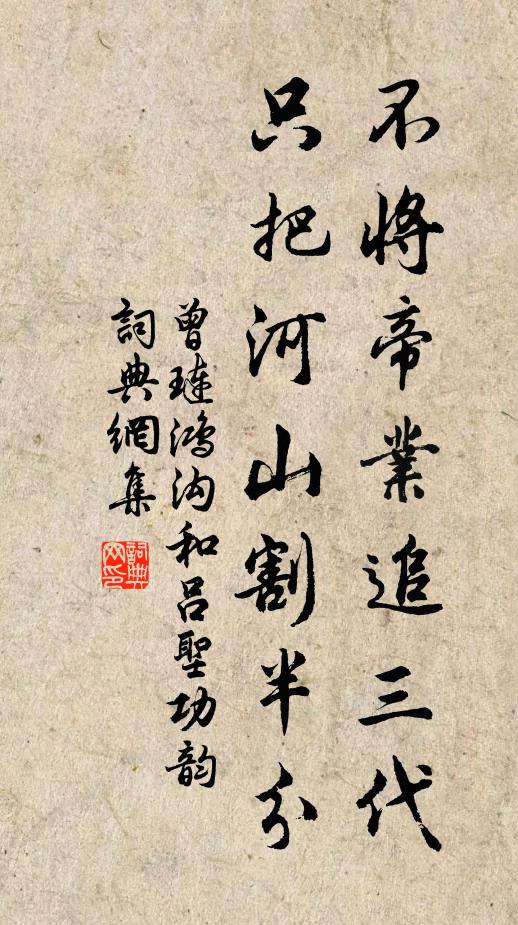 不將帝業追三代
只把河山割半分
曾璉鴻沟和呂聖功韵
詞典網集
詞典网印